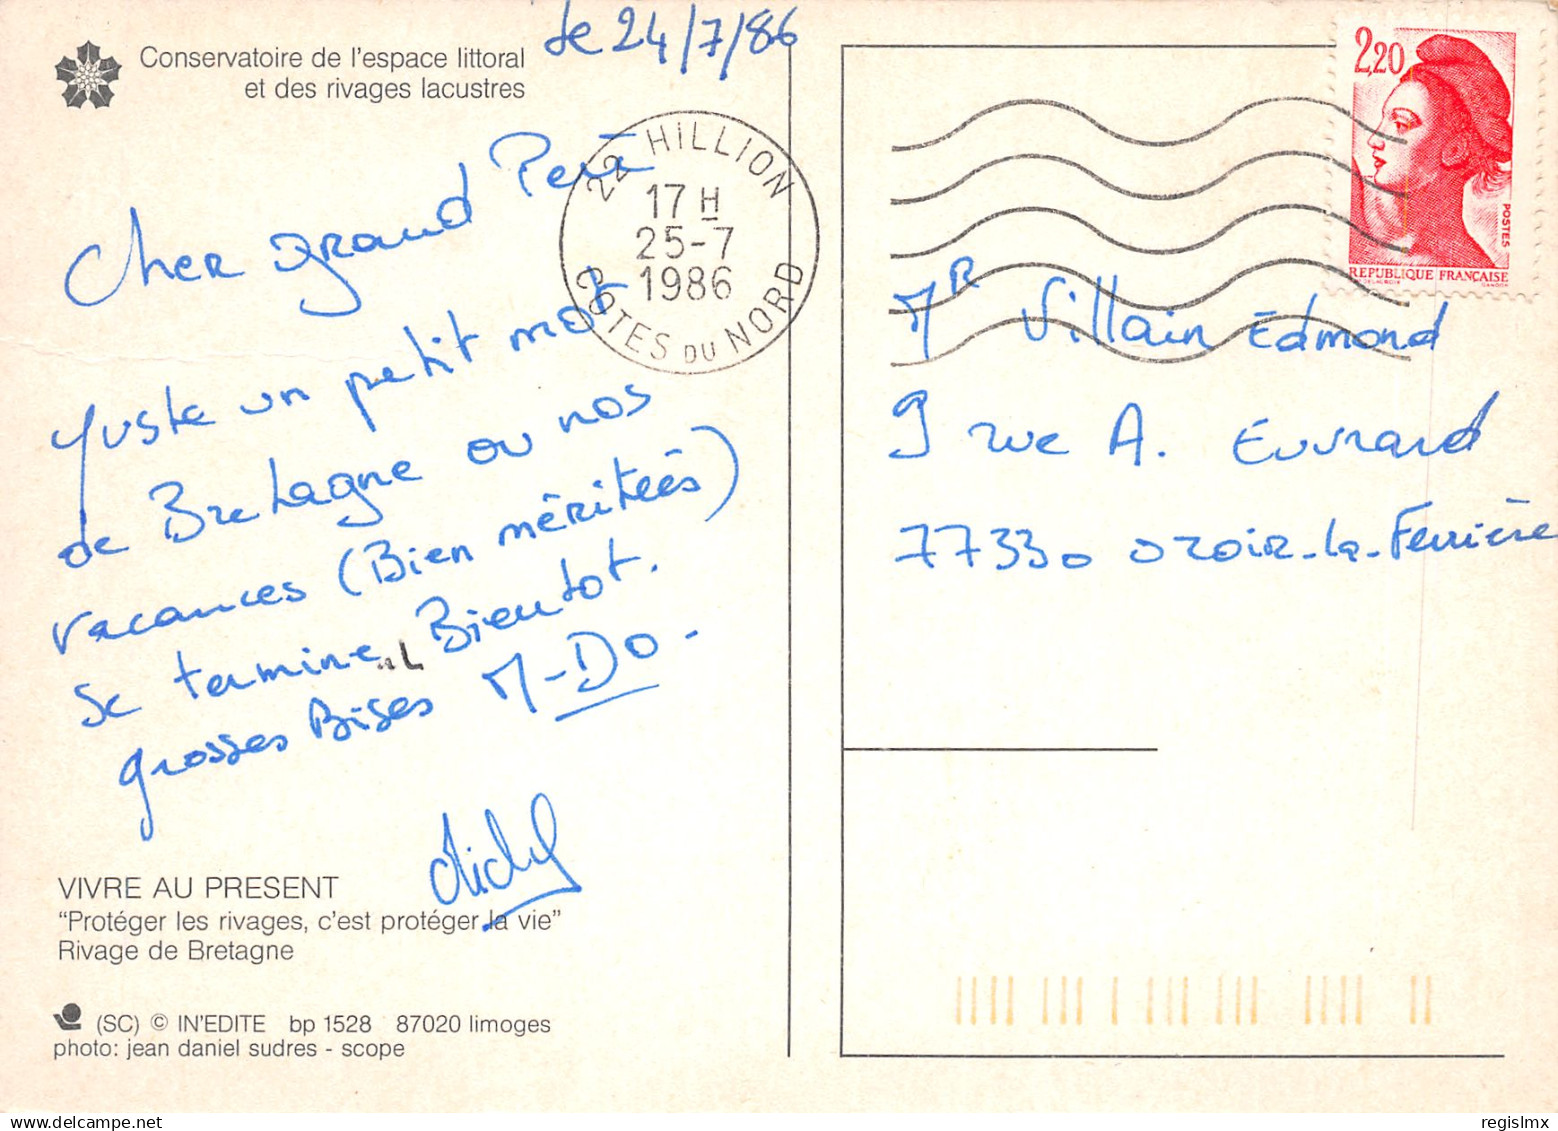 Conservatoire de l'espace littoral
et des rivages lacustres
le 24/7/86
22 HILLION
17 H
25-7
1986
COTES DU NORD
Cher grand Père
Juste un petit mot
de Bretagne ou nos
vacances (Bien méritées)
se termine Bientot.
grosses Bises M-DO-
VIVRE AU PRESENT
"Protéger les rivages, c'est protéger la vie"
Rivage de Bretagne
(SC) © IN'EDITE bp 1528 87020 limoges
photo: jean daniel sudres - scope
2,20
POSTES
REPUBLIQUE FRANÇAISE
Mr Villain Edmond
9 rue A. Euvrard
77330 ozoir-la-Ferrière
regislmx